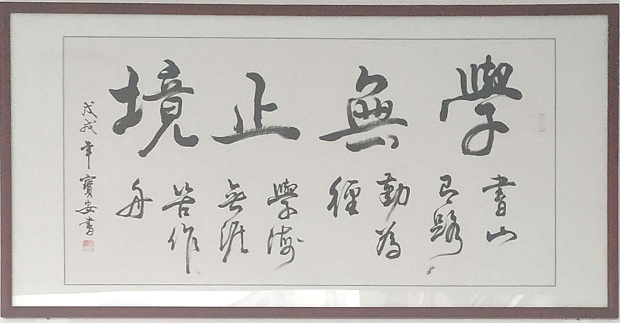 學無止境
書山
有路
勤為
徑
學海
無涯
苦作
舟
戊戌年寶安書